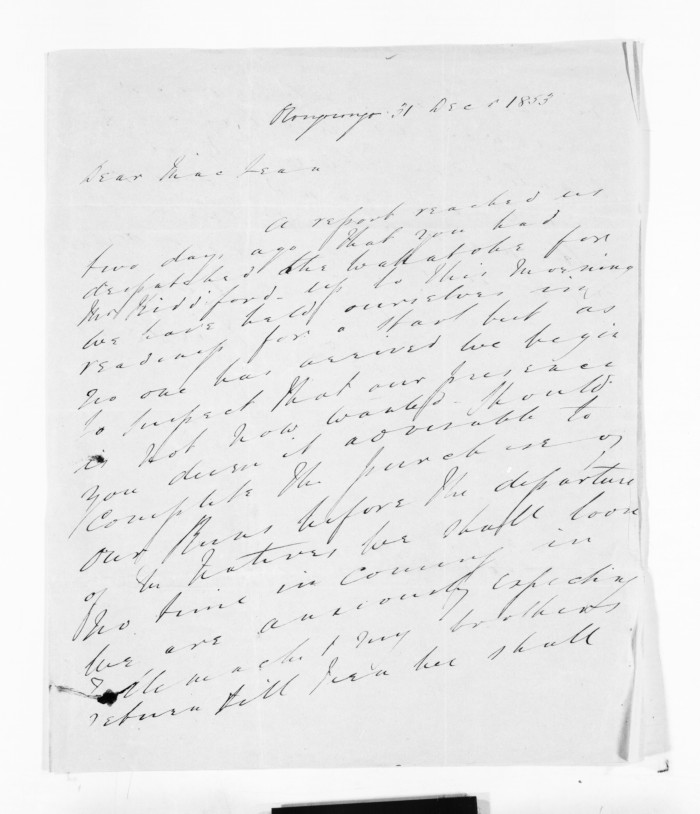 31 Dec 1853
Dear Mac Lean
A report reached us
two days ago that you had
despatched the for
Mr Riddiford - up to this Morning
We have held ourselves in
readiness for a start but as
no one has arrived we begin
to suspect that our presence
is not now wanted. Should
you deem it advisable to
Complete the purchase of
our Runs before the departure
of the Natives we shall loose
no time in coming in
We are anxiously expecting
& my brothers
return till then we shall